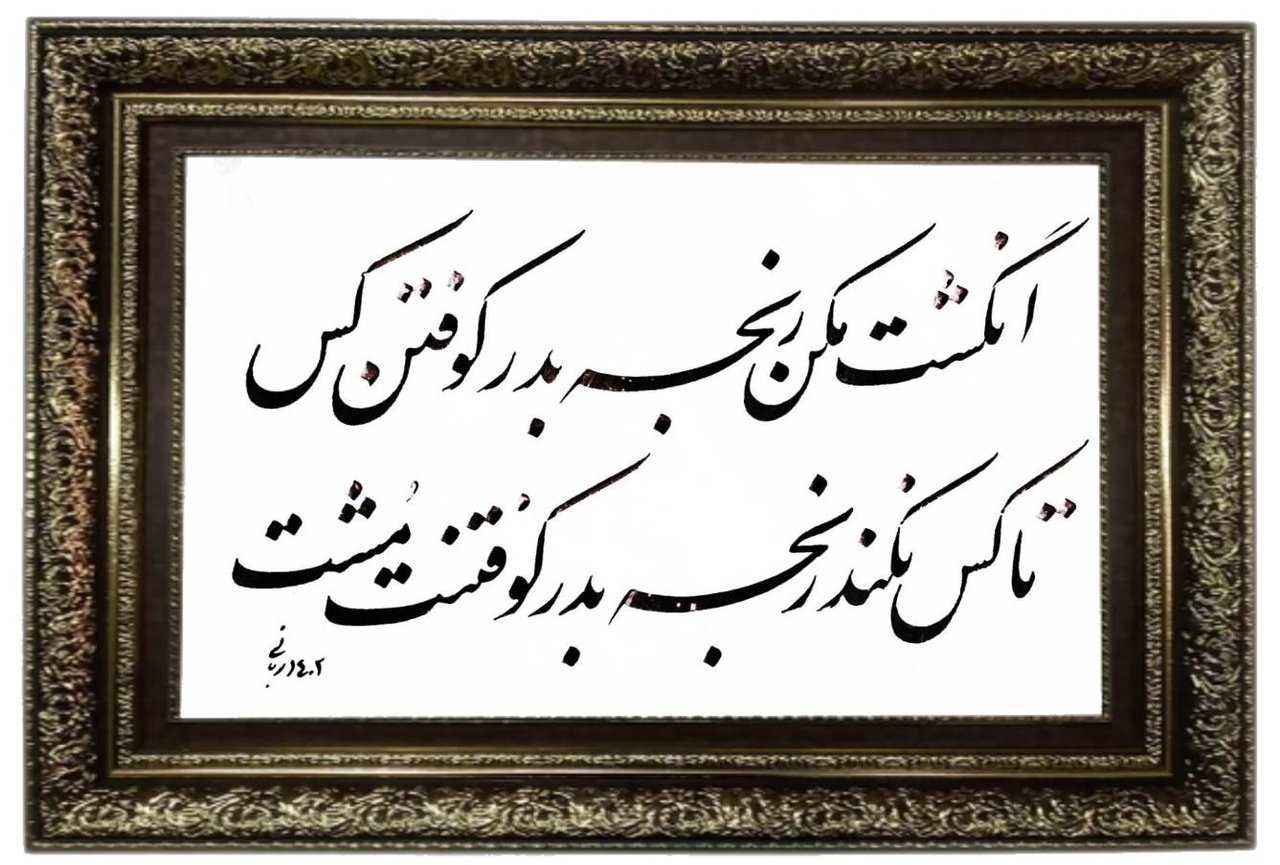 انگشت مکن رنجه بدر کوفتن کس
تا کس نکند رنجه بدر کوفتنت مُشت
ربانی ۱۴۰۲